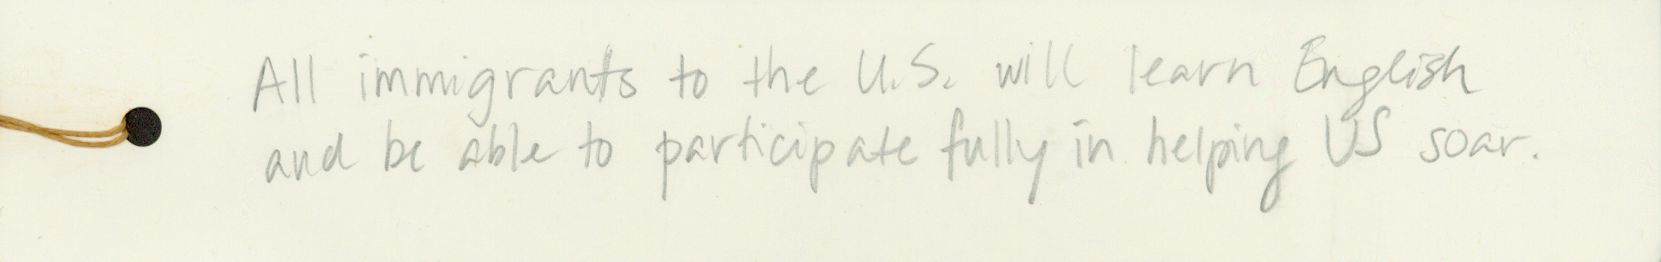 All immigrants to the U.S. will learn English
and be able to participate fully in helping US soar.